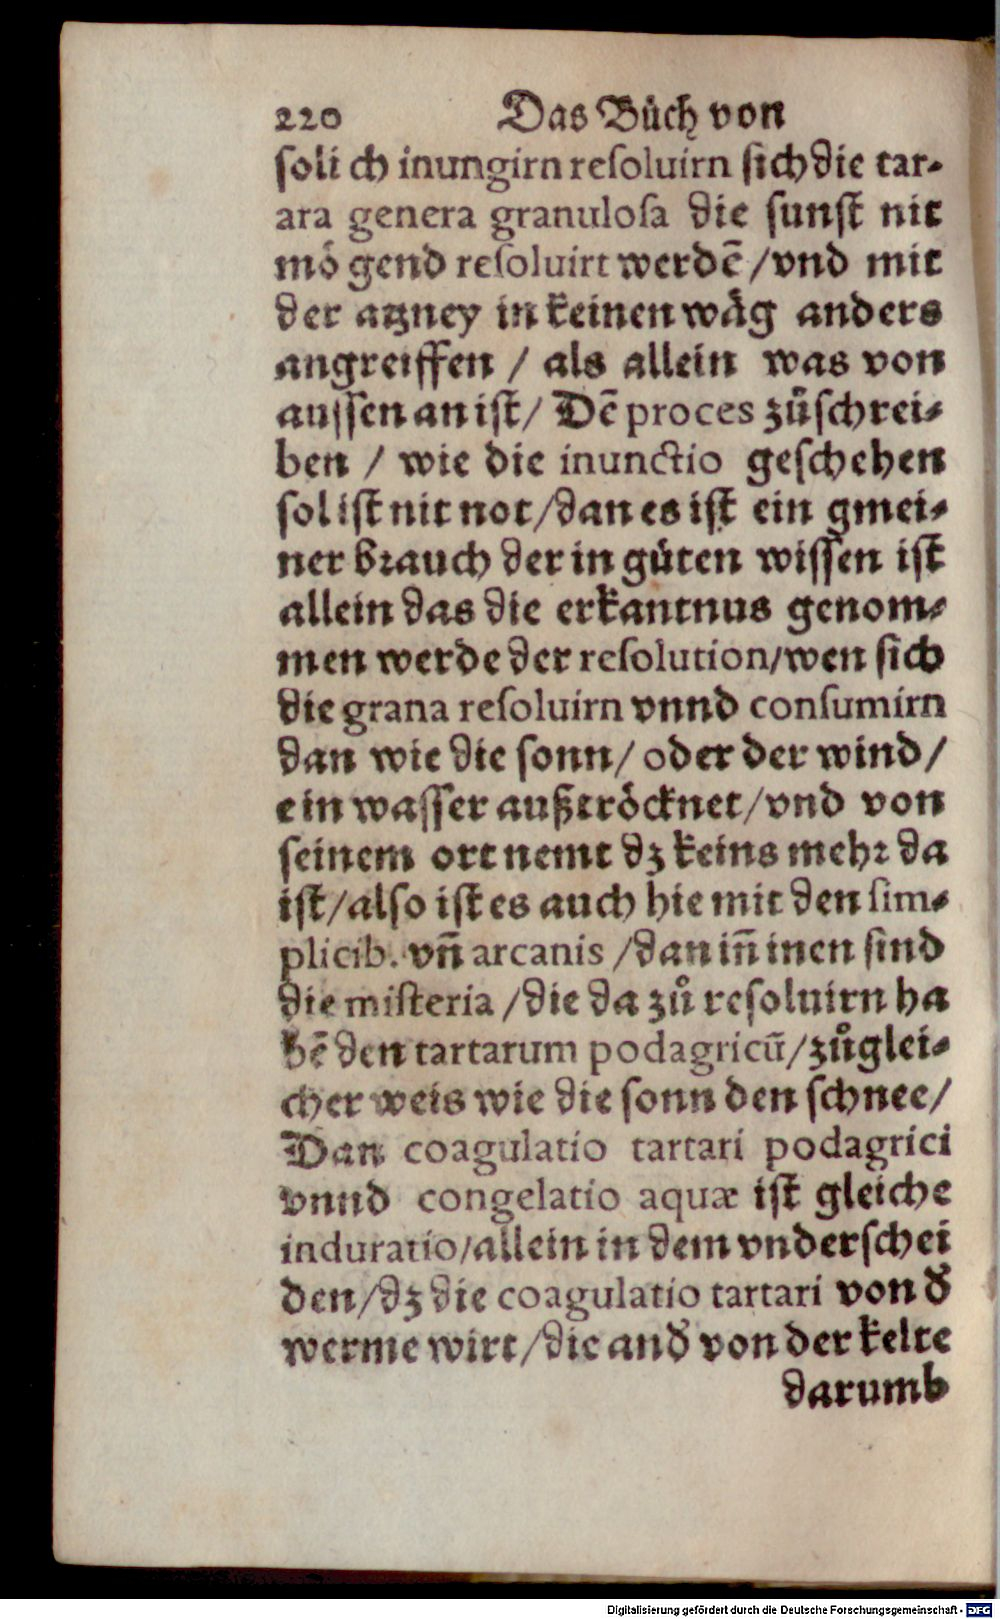 220 Das Bůch von
soli ch inungirn reſoluirn ſich die tar-
ara genera granuloſa die ſunſt nit
mö gend reſoluirt werdẽ / vnd mit
der atzney in keinen wåg anders
angreiffen / als allein was von
auſſen an iſt / Dẽ proces zůſchrei-
ben / wie die inunctio geſchehen
ſol iſt nit not / dan es iſt ein gmei-
ner brauch der in gůten wiſſen iſt
allein das die erkantnus genom-
men werde der reſolution / wen ſich
die grana reſoluirn vnnd conſumirn
dan wie die ſonn / oder der wind /
ein waſſer außtröcknet / vnd von
ſeinem ort nemt dz keins mehr da
iſt / alſo iſt es auch hie mit den ſim-
plicib. vñ arcanis / dan iñ inen ſind
die miſteria / die da zů reſoluirn ha
bẽ den tartarum podagricũ / zůglei-
cher weis wie die ſonn den ſchnee /
Dan coagulatio tartari podagrici
vnnd congelatio aquæ iſt gleiche
induratio / allein in dem vnderſchei
den / dz die coagulatio tartari von d̕
werme wirt / die and̕ von der kelte
darumb
Digitalisierung gefördert durch die Deutsche Forschungsgemeinschaft - DFG